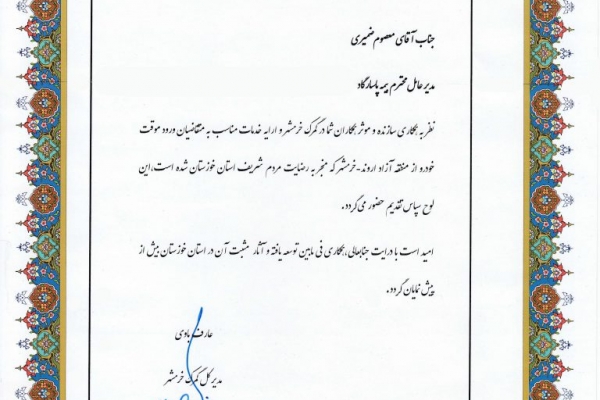 جناب آقای معصوم ضمیری
مدیر عامل محترم بیمه پاسارگاد
نظر به همکاری سازنده و موثر همکاران شما در گمرک خرمشهر و ارایه خدمات مناسب به متقاضیان ورود موقت
خودرو از منطقه آزاد اروند-خرمشهر که منجر به رضایت مردم شریف استان خوزستان شده است،این
لوح سپاس تقدیم حضور می گردد.
امید است با درایت جنابعالی،همکاری فی مابین توسعه یافته و آثار مثبت آن در استان خوزستان بیش از
پیش نمایان گردد.
عارف باوی
مدیر کل گمرک خرمشهر